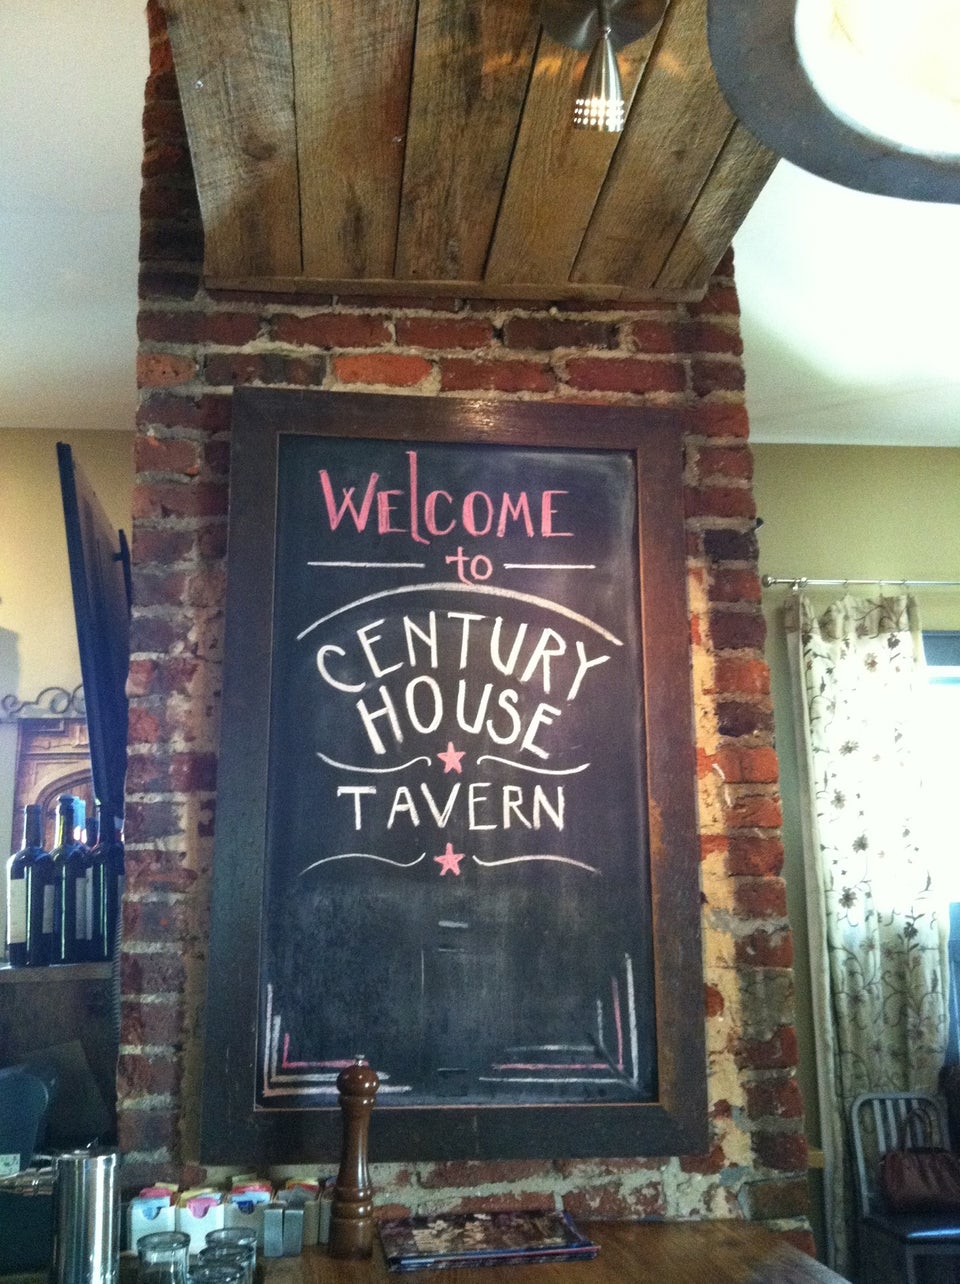 Welcome
to
CENTURY
HOUSE
TAVERN